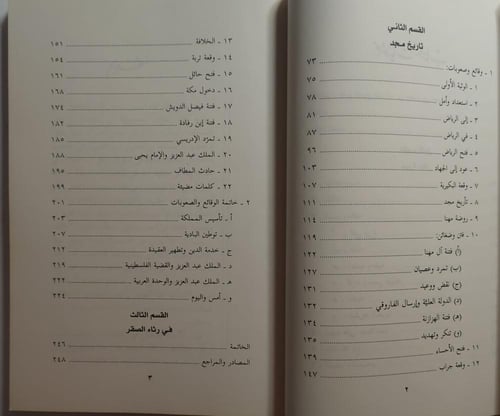 القسم الثاني
تاريخ مجد
١ - وقائع وصعوبات: ٧٣
١ - الوثبة الأولى ٧٥
٢ - استعداد وأمل ٧٨
٣ - إلى الرياض ٨١
٤ - في الرياض ٨٧
٥ - فتح الرياض ٩٦
٦ - عود إلى الجهاد ١٠٣
٧ - وقعة البكيرية ١٠٧
٨ - تأريخ مجد ١١١
٩ - روضة مهنا ١١٤
١٠ - فتن وضغائن: ١١٩
(أ) فتنة آل مهنا ١٢٢
(ب) تمرد وعصيان ١٢٧
(ج) نقض ووعيد ١٣١
(د) الدولة العليّة وإرسال الفاروقي ١٣٢
(هـ) فتنة الهزازنة ١٣٤
(و) تنكر وتهديد ١٣٥
١١ - فتح الأحساء ١٣٩
١٢ - وقعة جراب ١٤٧
٢
١٣ - الخلافة ١٥١
١٤ - وقعة تربة ١٥٤
١٥ - فتح حائل ١٦١
١٦ - دخول مكة ١٦٨
١٧ - فتنة فيصل الدويش ١٧٤
١٨ - فتنة إبن رفادة ١٨٢
١٩ - تمرّد الإدريسي ١٨٥
٢٠ - الملك عبد العزيز والإمام يحيى ١٨٨
٢١ - حادث المطاف ١٩٥
٢٢ - كلمات مضيئة ١٩٩
٢ - خاتمة الوقائع والصعوبات ٢٠١
أ - تأسيس المملكة ٢٠٣
ب - توطين البادية ٢٠٧
ج - خدمة الدين وتطهير العقيدة ٢١٢
د - الملك عبد العزيز والقضية الفلسطينية ٢١٩
هـ - الملك عبد العزيز والوحدة العربية ٢٢٢
و - أمس واليوم ٢٢٤
القسم الثالث
في رثاء الصقر
الخاتمة ٢٤٦
المصادر والمراجع ٢٤٨
٣